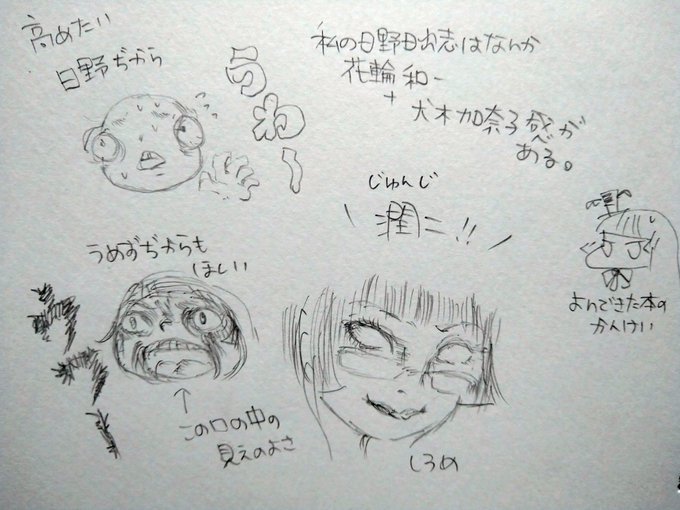 高めたい
日野ぢから
うねー
私の日野日出志はなんか
花輪和一
+
犬木加奈子感が
ある。
じゅんじ
潤二!!
うめずぢからも
ほしい
この口の中の
見えのよさ
しろめ
よんできた本の
かんけい